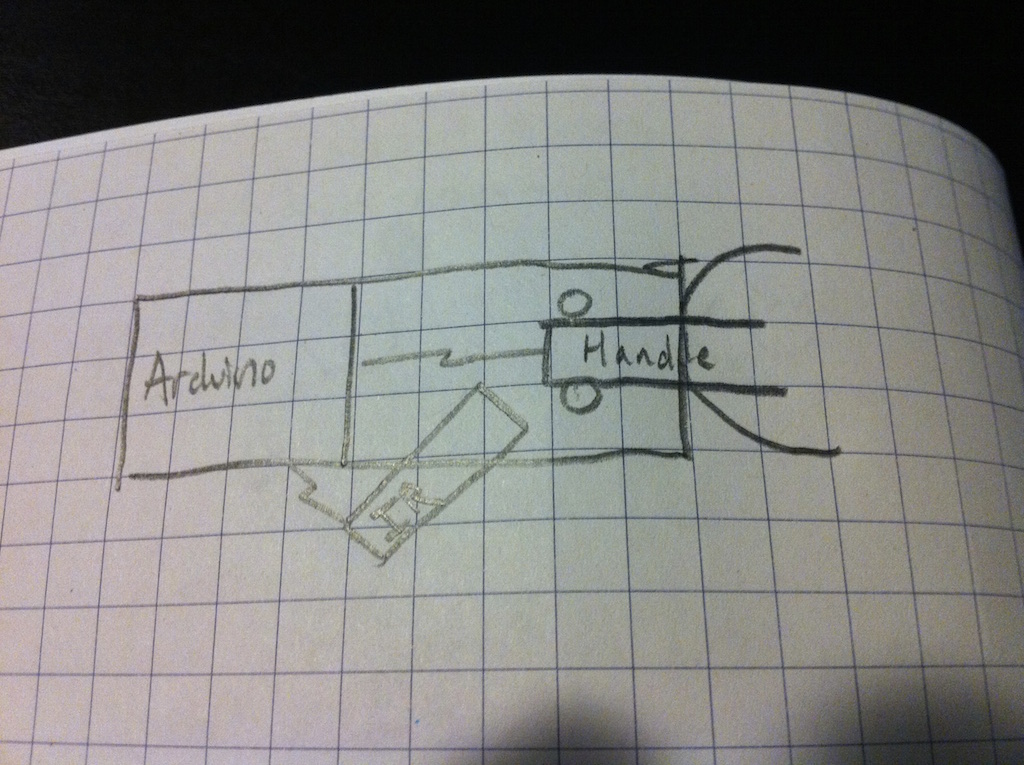 Arduino
Handle
IR